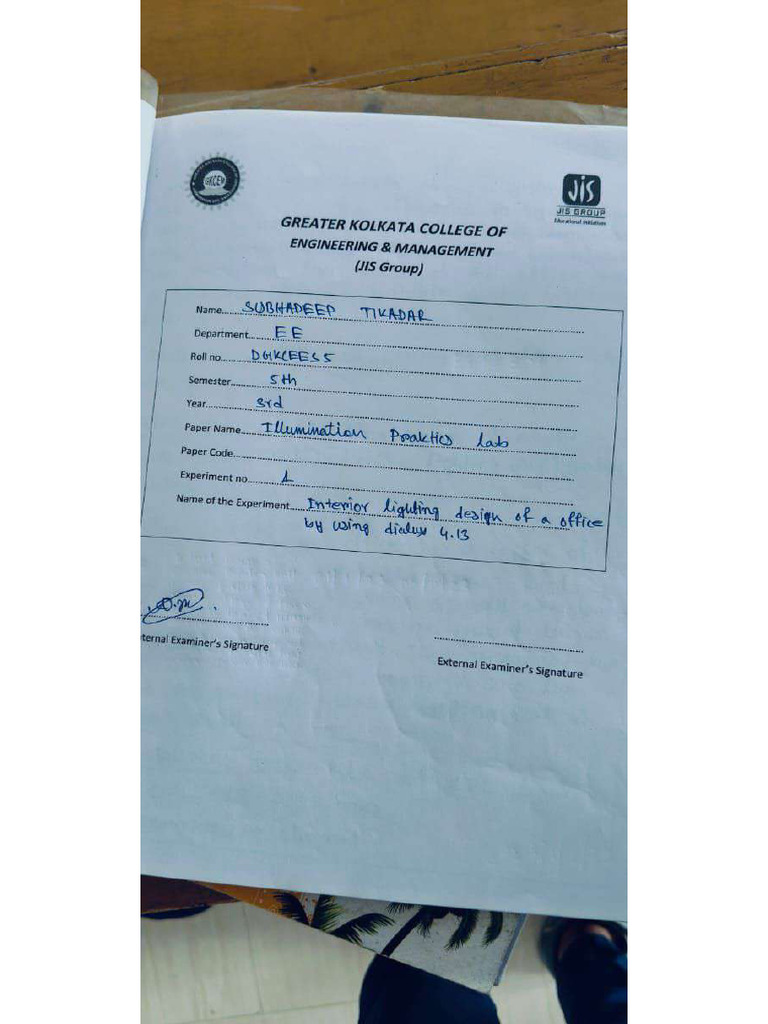 GKCEM
JIS
JIS GROUP
Educational Initiatives
GREATER KOLKATA COLLEGE OF
ENGINEERING & MANAGEMENT
(JIS Group)
Name SUBHADEEP TIKADAR
Department EE
Roll no.
Semester 5th
Year 3rd
Paper Name Illumination Lab
Paper Code
Experiment no 1
Name of the Experiment Interior lighting design of a office
by using dialux 4.13
ternal Examiner's Signature
External Examiner's Signature